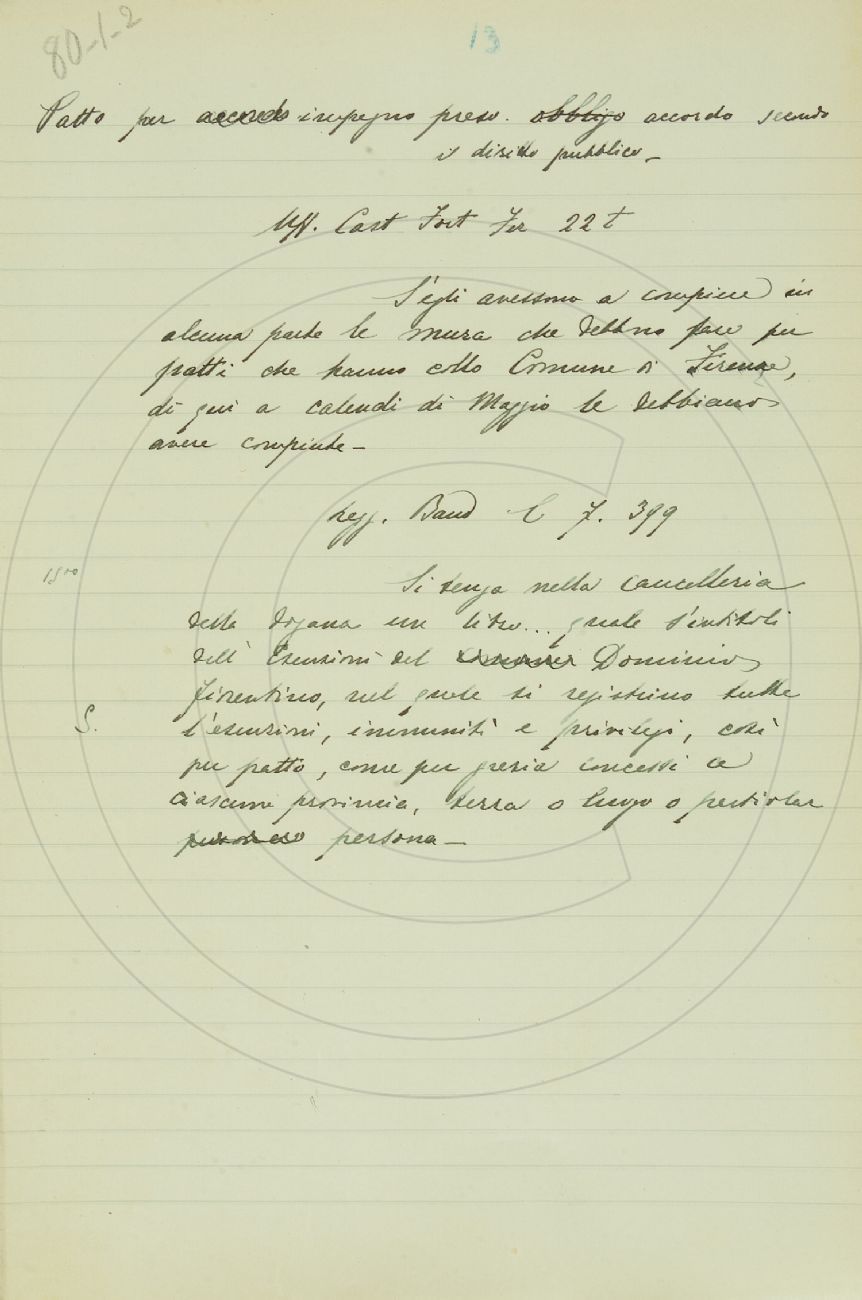 80-1-2
13
Patto per accordo impegno preso. obbligo accordo secondo
il diritto pubblico_
Uff. Cast Fort Fir 22 t
S'egli avessono a compiere in
alcuna parte le mura che debbno fare per
patti che hanno collo Comune di Firenze,
di qui a calendi di Maggio le debbiano
avere compiute_
Legg. Band C 7. 399
Si tenga nella cancelleria
della dogana un libro... quale s'intitoli
dell' Esenzioni del Dominio
fiorentino, nel quale si registrino tutte
S. l'esenzioni, immunità e privilegi, così
per patto, come per grazia concessi a
ciascune provincia, terra o luogo o particolar
persona_